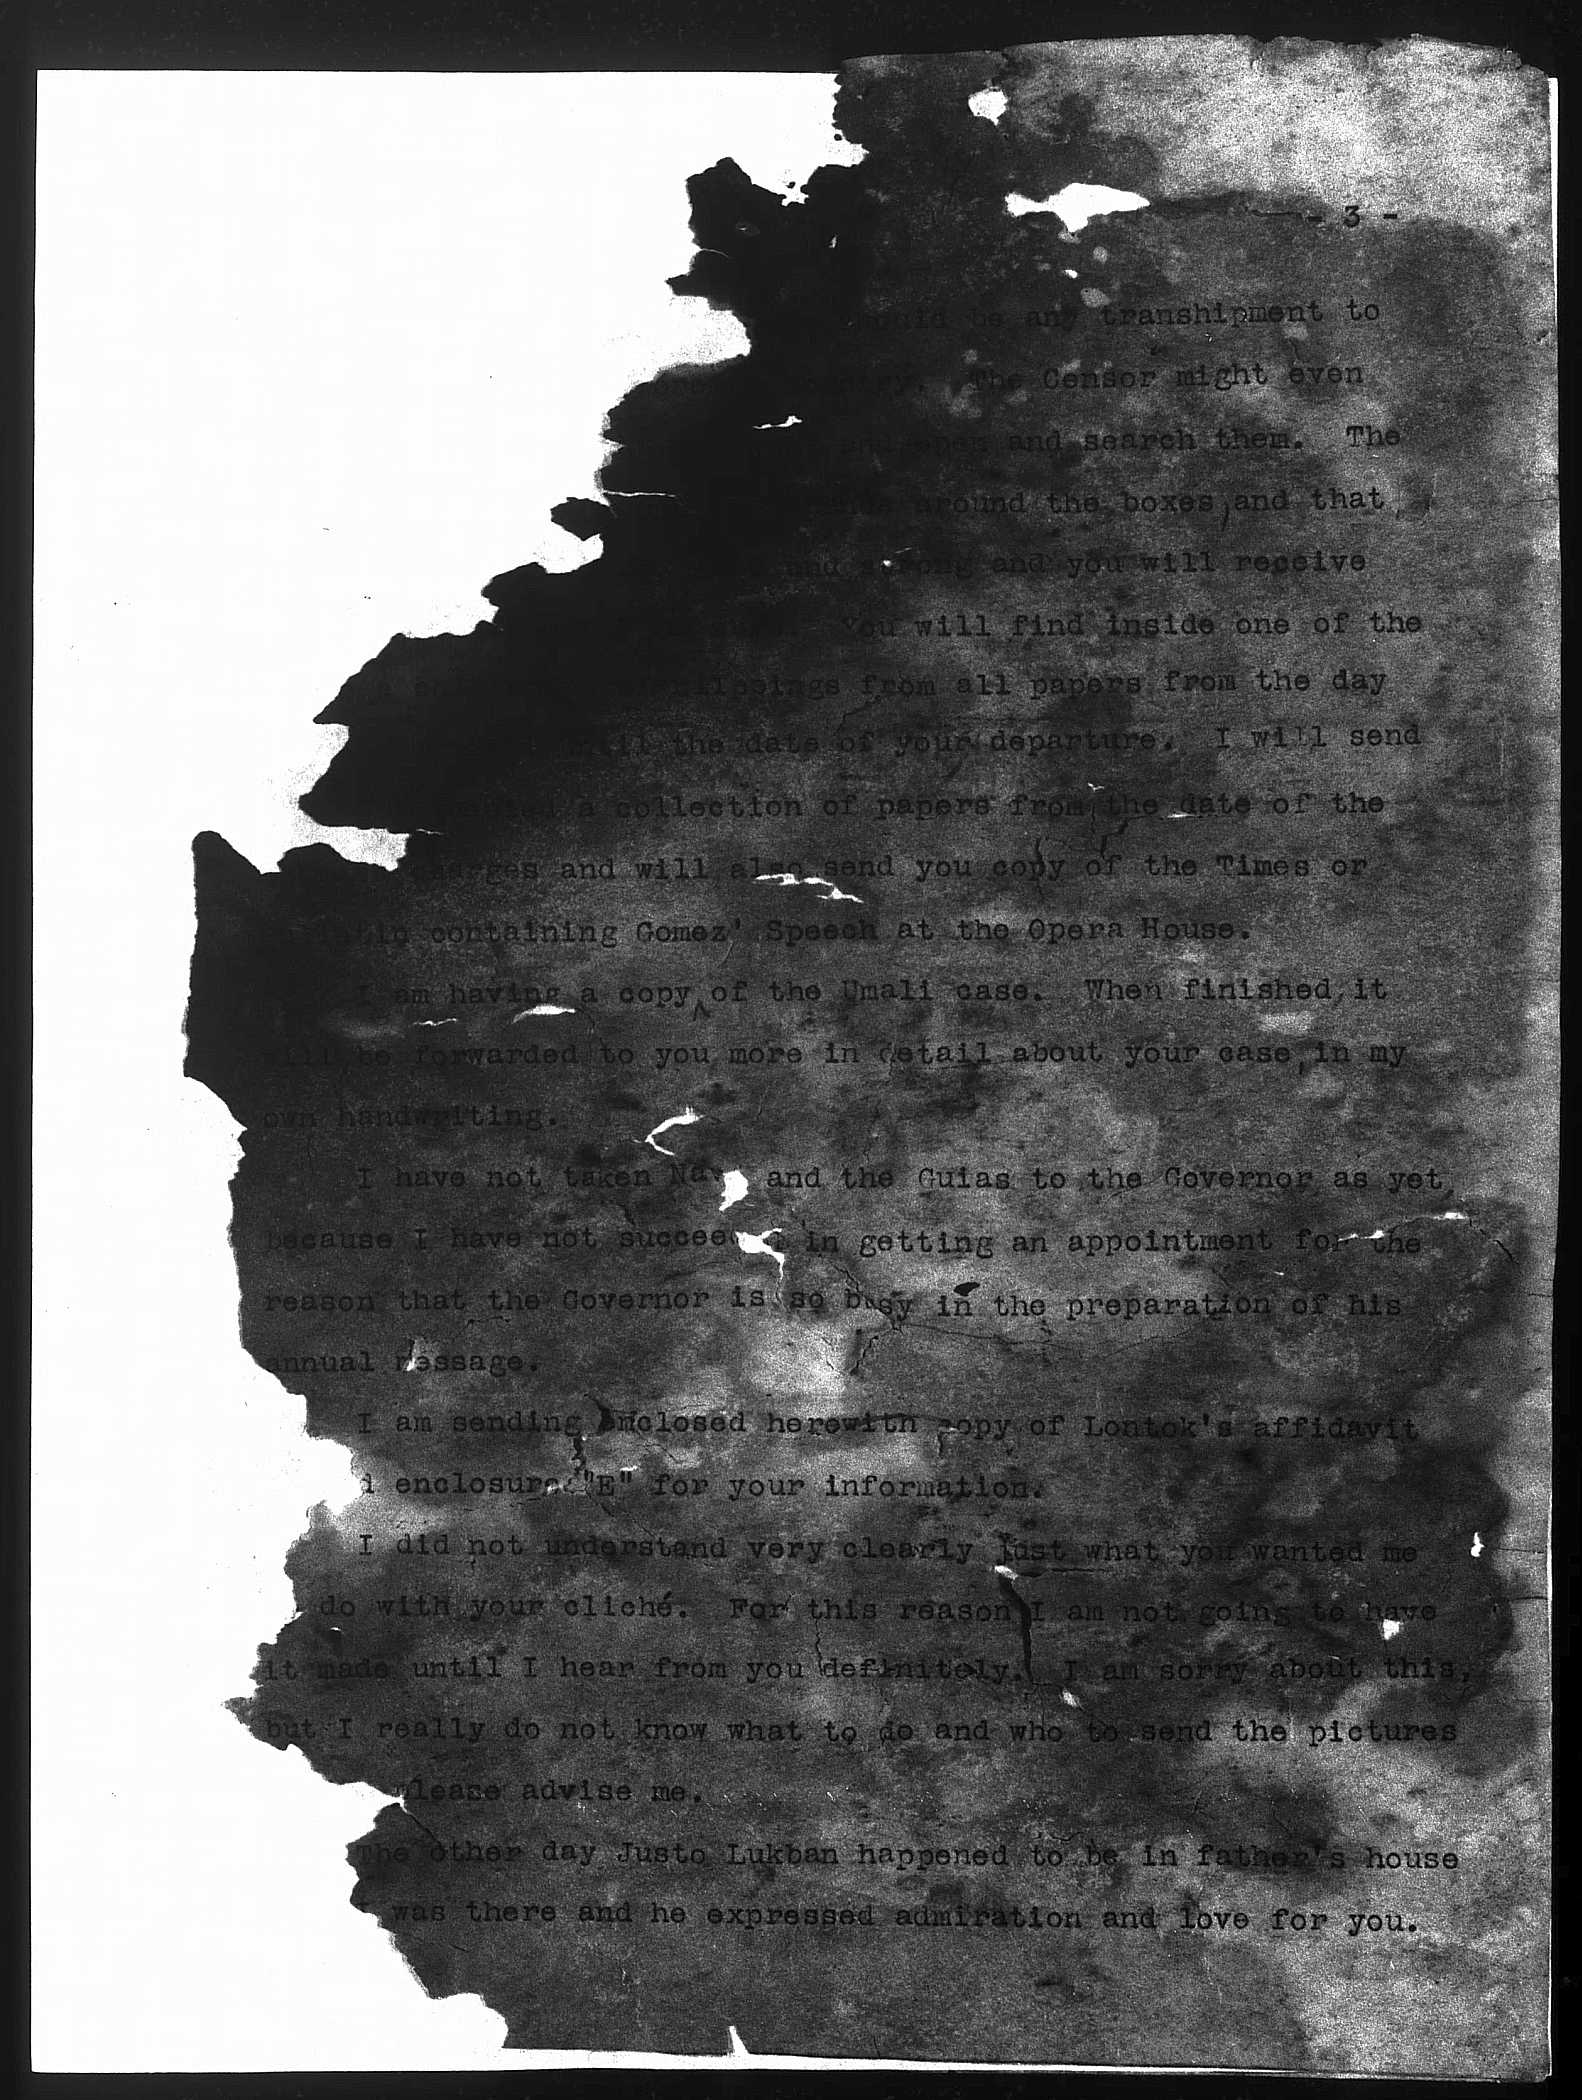 - 3 -
be any transhipment to
The Censor might even
and open and search them. The
around the boxes, and that
and strong and you will receive
You will find inside one of the
clippings from all papers from the day
until the date of your departure. I will send
a collection of papers from the date of the
charges and will also send you copy of the Times or
containing Gomez' Speech at the Opera House.
I am having a copy of the Umali case. When finished, it
will be forwarded to you more in detail about your case, in my
own handwriting.
I have not taken and the Guias to the Governor as yet
because I have not in getting an appointment for the
reason that the Governor is so busy in the preparation of his
annual message.
I am sending enclosed herewith copy of Lontok's affidavit
enclosure "E" for your information.
I did not understand very clearly just what you wanted me
do with your cliché. For this reason I am not going to have
it made until I hear from you definitely. I am sorry about this,
but I really do not know what to do and who to send the pictures
please advise me.
The other day Justo Lukban happened to be in father's house
was there and he expressed admiration and love for you.